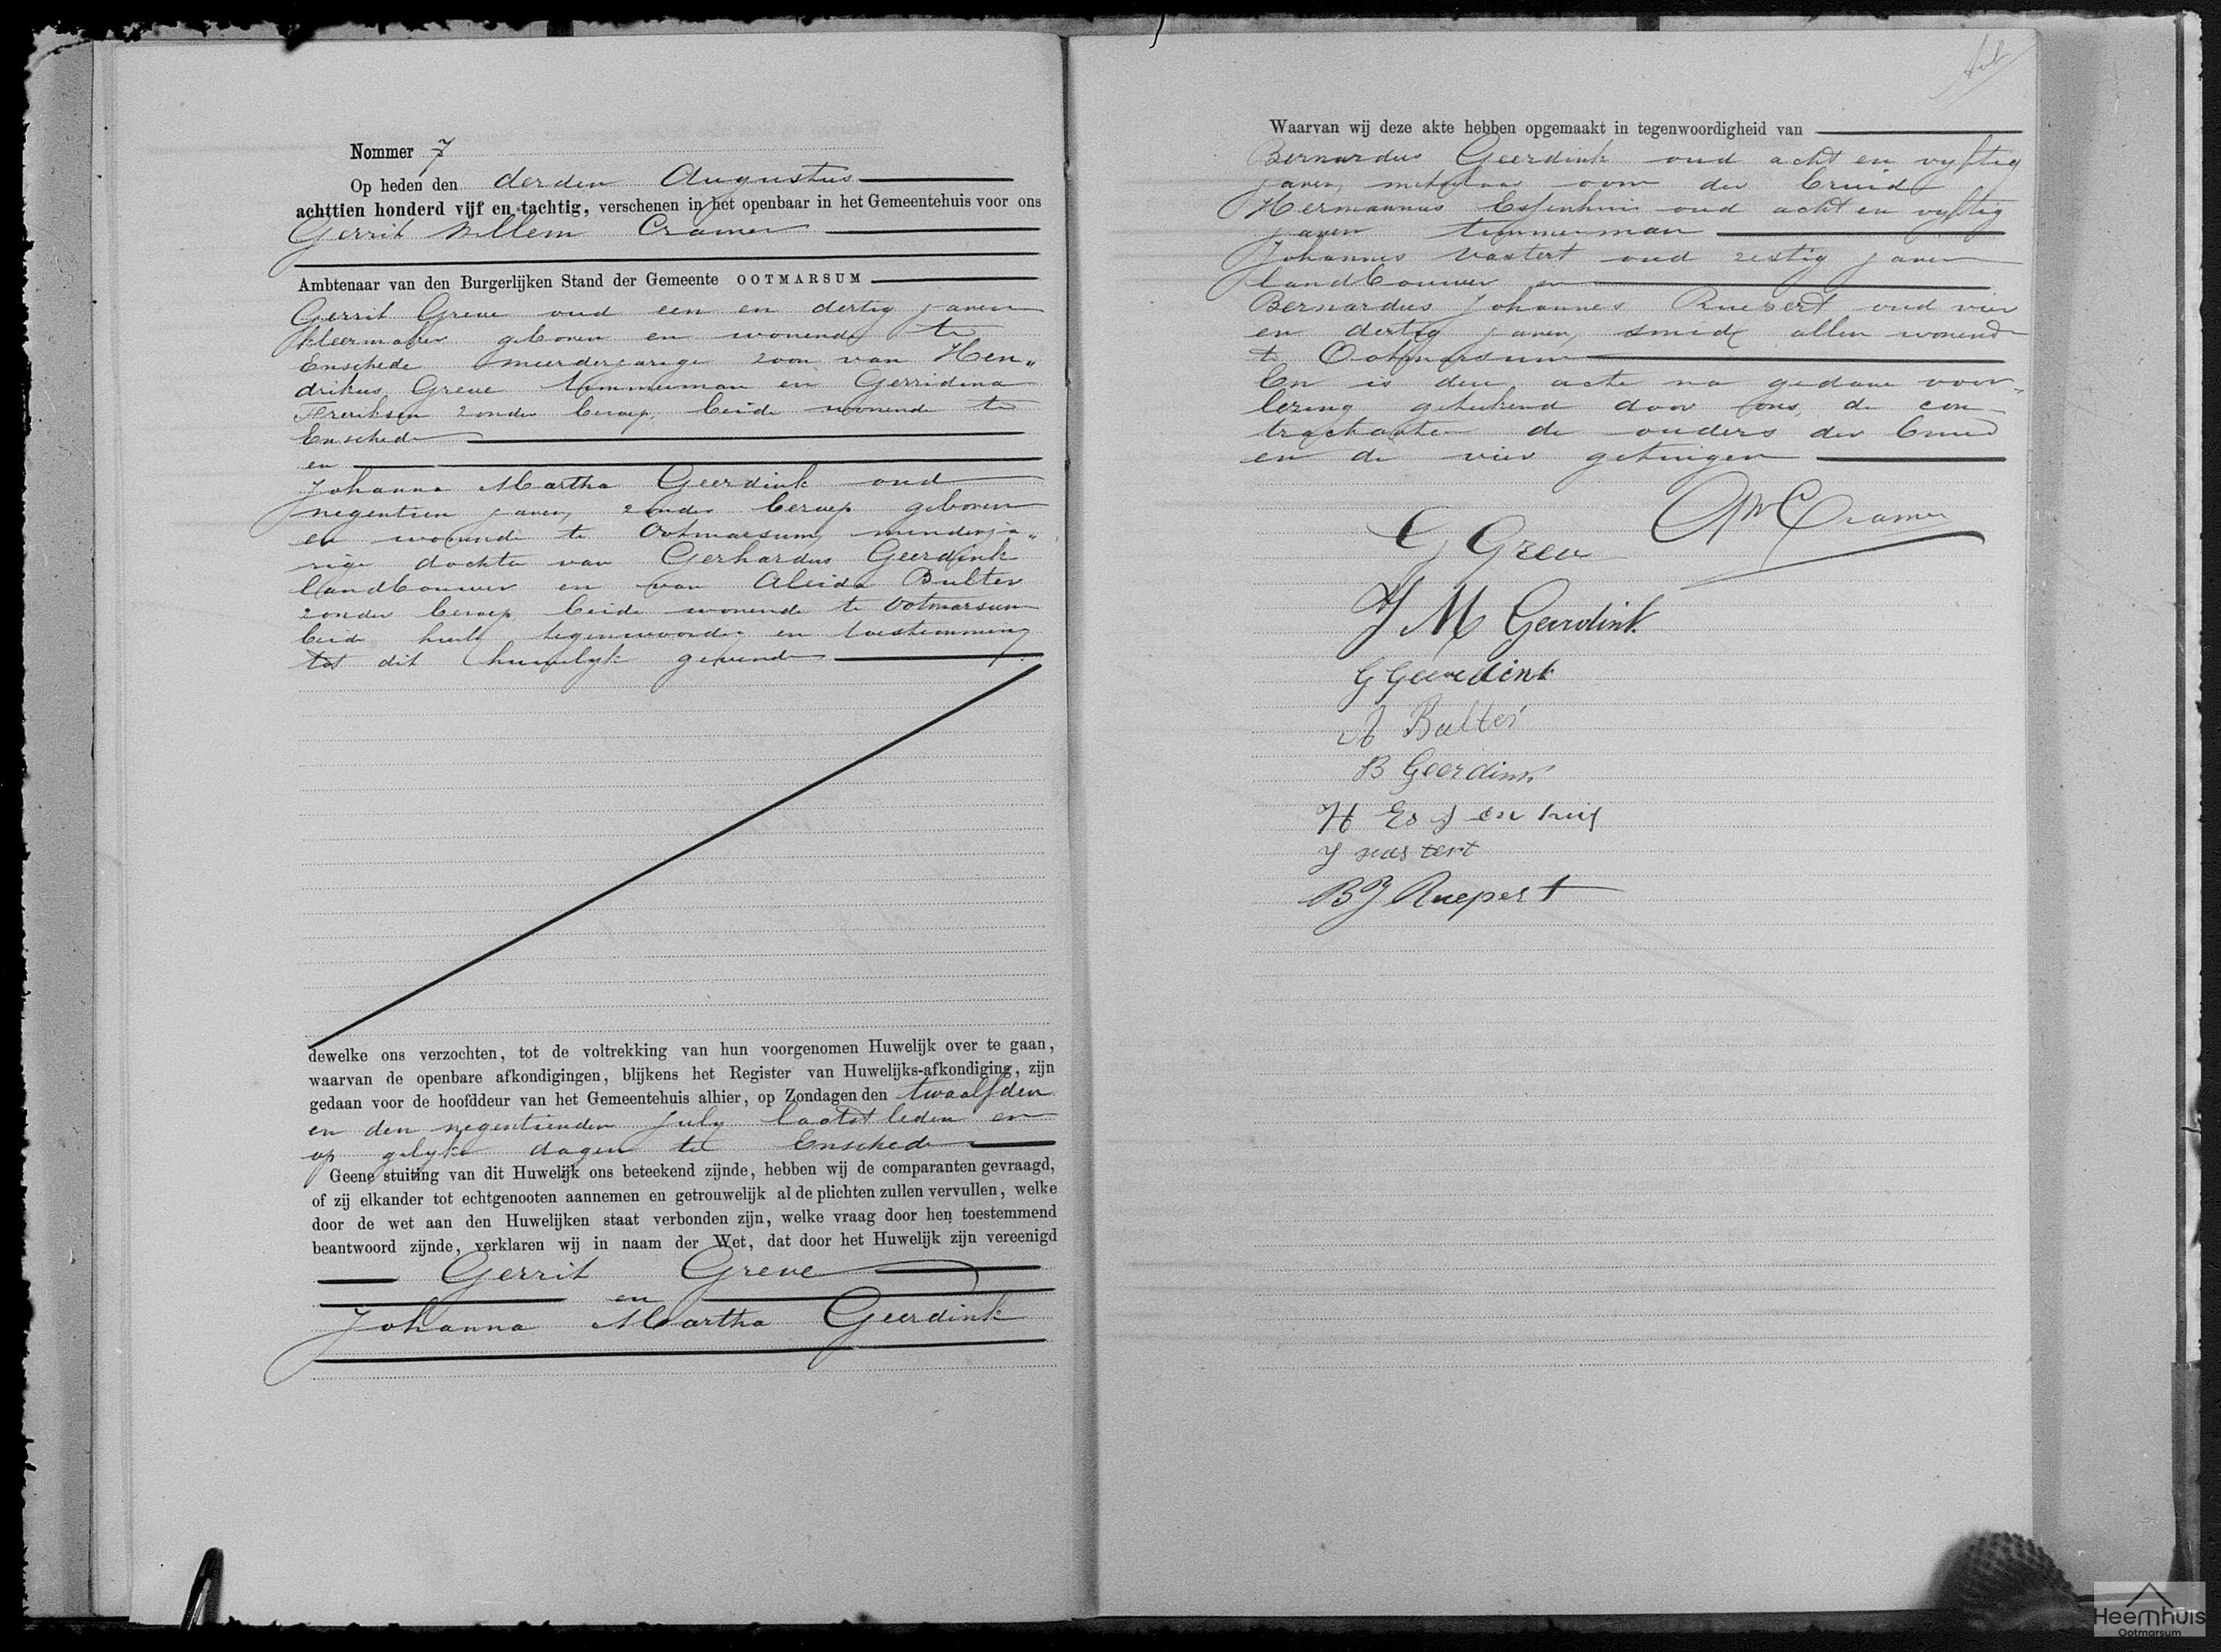 Nommer 7
Op heden den derden Augustus
achttien honderd vijf en tachtig, verschenen in het openbaar in het Gemeentehuis voor ons
Gerrit Willem Cramer
Ambtenaar van den Burgerlijken Stand der Gemeente OOTMARSUM
Gerrit Greve oud een en dertig jaren
kleermaker geboren en wonende te
Enschede meerderjarige zoon van Hen„
drikus Greve timmerman en Gerridina
Freriksen zonder beroep, beide wonende te
Enschede
en
Johanna Martha Geerdink oud
negentien jaren, zonder beroep geboren
en wonende te Ootmarsum, minderja„
rige dochter van Gerhardus Geerdink
landbouwer en van Aleida Bulter
zonder beroep beide wonende te Ootmarsum
beide hierby tegenwoordig en toestemming
tot dit huwelyk gevende
dewelke ons verzochten, tot de voltrekking van hun voorgenomen Huwelijk over te gaan,
waarvan de openbare afkondigingen, blijkens het Register van Huwelijks-afkondiging, zijn
gedaan voor de hoofddeur van het Gemeentehuis alhier, op Zondagen den twaalfden
en den negentienden July laatstleden en
op gelyke dagen te Enschede
Geene stuiting van dit Huwelijk ons beteekend zijnde, hebben wij de comparanten gevraagd,
of zij elkander tot echtgenooten aannemen en getrouwelijk al de plichten zullen vervullen, welke
door de wet aan den Huwelijken staat verbonden zijn, welke vraag door hen toestemmend
beantwoord zijnde, verklaren wij in naam der Wet, dat door het Huwelijk zijn vereenigd
Gerrit Greve
en
Johanna Martha Geerdink
Waarvan wij deze akte hebben opgemaakt in tegenwoordigheid van
Bernardus Geerdink oud acht en vyftig
jaren, metselaar oom der bruid
Hermannus Essenhuis oud acht en vyftig
jaren timmerman
Johannes Vastert oud zestig jaren
landbouwer en
Bernardus Johannes Ruepert oud vier
en dertig jaren, smid allen wonende
te Ootmarsum
En is deze acte na gedane voor„
lezing geteekend door ons, de con-
tractanten de ouders der bruid
en de vier getuigen
GW Cramer
G Greve
J M Geerdink
G Geerdink
A Bulter
B Geerdink
H Essenhuis
J Vastert
BJ Ruepert
Heemhuis
Ootmarsum